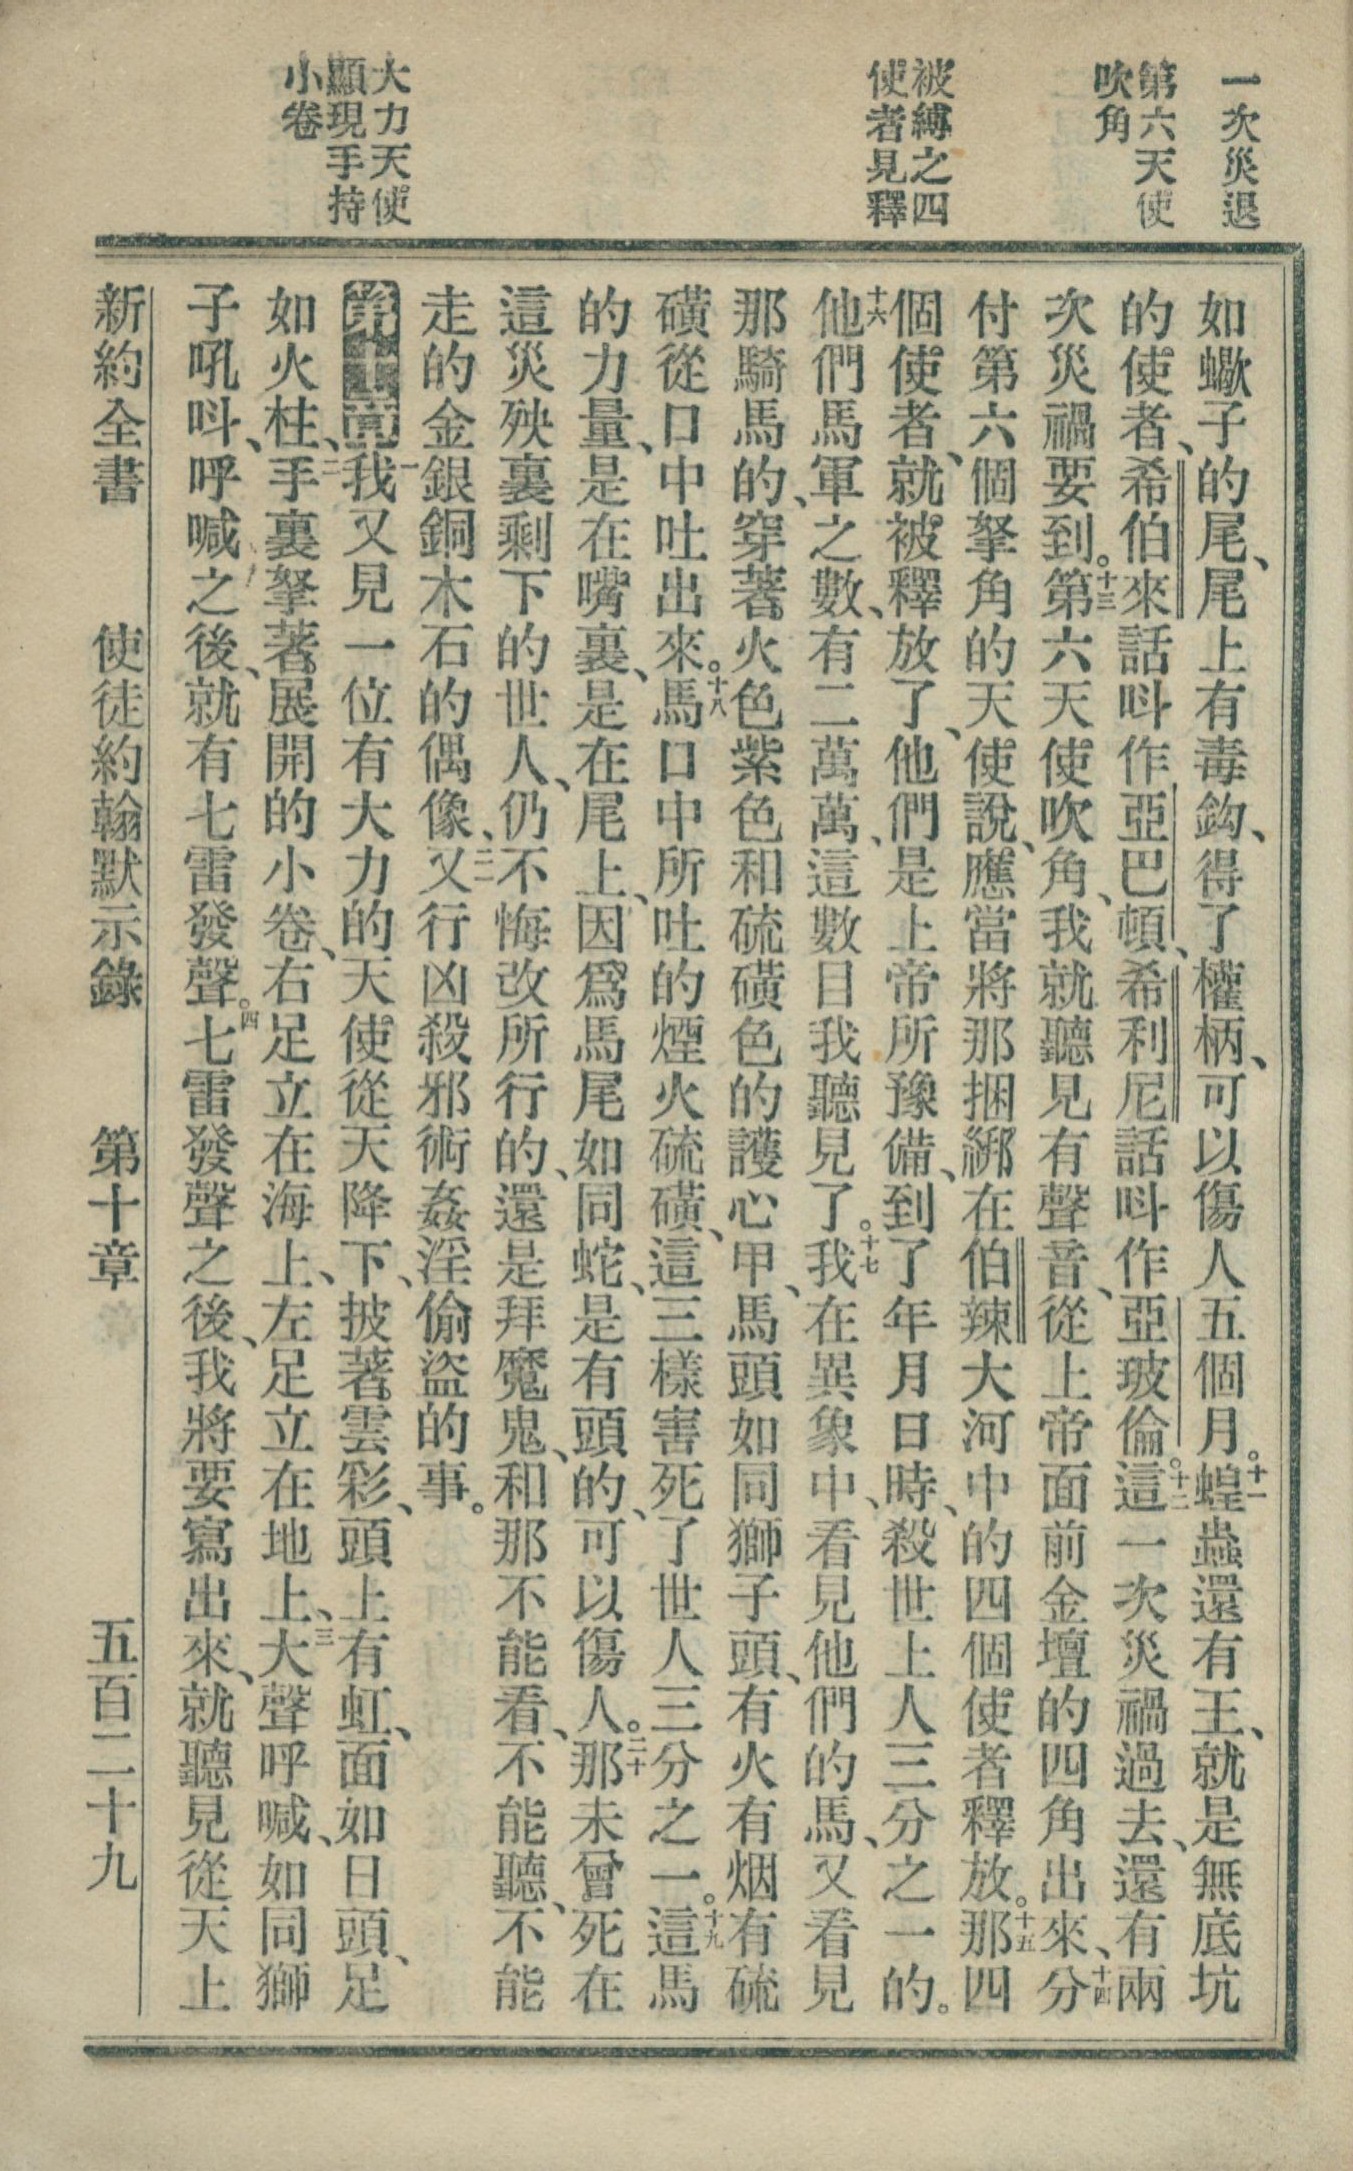 一次災退
第六天使
吹角
被縛之四
使者見釋
大力天使
顯現手持
小卷
如蠍子的尾、尾上有毒鈎、得了權柄、可以傷人五個月。十一蝗蟲還有王、就是無底坑
的使者、希伯來話呌作亞巴頓、希利尼話呌作亞玻倫。十二這一次災禍過去、還有兩
次災禍要到。十三第六天使吹角、我就聽見有聲音、從上帝面前金壇的四角出來、十四分
付第六個拏角的天使說、應當將那捆綁在伯辣大河中的四個使者釋放。十五那四
個使者、就被釋放了、他們是上帝所豫備、到了年月日時、殺世上人三分之一的。
十六他們馬軍之數、有二萬萬、這數目我聽見了。十七我在異象中、看見他們的馬、又看見
那騎馬的、穿著火色紫色和硫磺色的護心甲、馬頭如同獅子頭、有火有烟有硫
磺從口中吐出來。十八馬口中所吐的煙火硫磺、這三樣害死了世人三分之一。十九這馬
的力量、是在嘴裏、是在尾上、因爲馬尾如同蛇、是有頭的、可以傷人。二十那未曾死在
這災殃裏剩下的世人、仍不悔改所行的、還是拜魔鬼、和那不能看、不能聽、不能
走的金銀銅木石的偶像、二一又行凶殺邪術姦淫偷盜的事。
第十章一我又見一位有大力的天使從天降下、披著雲彩、頭上有虹、面如日頭、足
如火柱、二手裏拏著展開的小卷、右足立在海上、左足立在地上、三大聲呼喊、如同獅
子吼呌、呼喊之後、就有七雷發聲。四七雷發聲之後、我將要寫出來、就聽見從天上
新約全書　使徒約翰默示錄　第十章　五百二十九